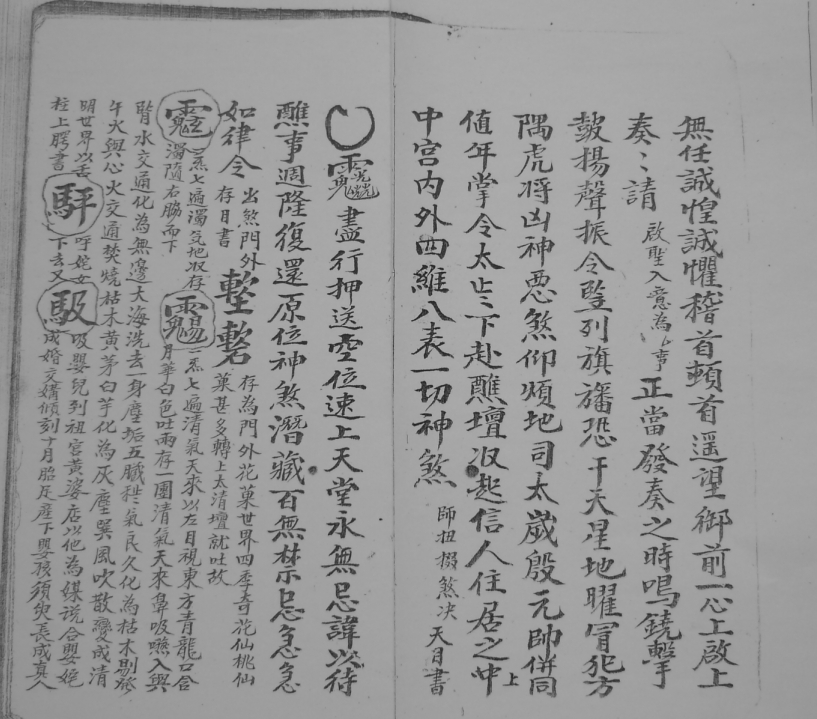 無任誠惶誠懼稽首頓首遥望御前一心上啟上
奏〻請 啟聖入意為厶事 正當發奏之時鳴鐃擊
鼓揚聲振令竪列旗旛恐干天星地曜冒犯方
隅虎將凶神恶煞仰煩地司太歲殷元帥併同
值年掌令太歲〻下赴醮壇收起信人住居之中上
中宫内外四維八表一切神煞 師扭掇煞决 天目書
盡行押送空位速上天堂永無忌諱以待
醮事週隆復還原位神煞潛藏百無禁忌急急
如律令 出煞門外存目書 存為門外花菓世界四季奇花仙桃仙菓甚多轉上太清壇就吐故
一炁七遍濁气地收存濁隨右脇而下 一炁七遍清氣天來以左目視東方青龍口含月華白色吐兩存一團清氣天來鼻吸嚥入與
腎水交通化為無邊大海洗去一身塵垢五臟秽氣良久化為枯木剔發
午火與心火交通焚燒枯木黄茅白芋化為灰塵巽風吹散變成清
明世界以舌柱上腭書 呼姹女下去又 吸嬰兒到祖宫黄婆店以他為媒说合嬰姹成婚交媾傾刻十月胎足産下嬰孩須臾長成真人